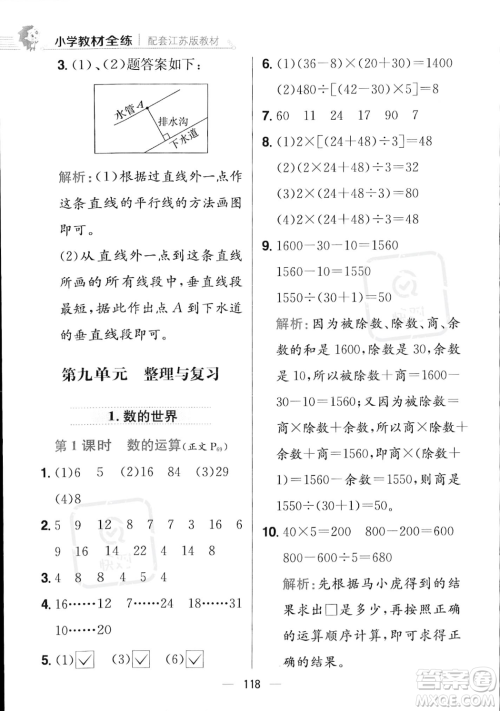 小学教材全练 配套江苏版教材
3. (1)、(2)题答案如下:
水管A
排水沟
下水道
解析:(1)根据过直线外一点作
这条直线的平行线的方法画图
即可。
(2)从直线外一点到这条直线
所画的所有线段中,垂直线段
最短,因此作出点A到下水道
的垂直线段即可。
第九单元 整理与复习
1. 数的世界
第1课时 数的运算(正文P93)
1. (1)6 5 (2)16 (3)29
(4)8
2. 5 9 12 8 7 7 8
15 6 24
3. 4 8 4 8
4. 16……2 16……17
10……20
5. (1)✓ (2)✓
6. (1)(36-8)×(24÷3)=224
(2)480÷[(42-30)×5]=8
7. 60 11 24 17 90 7
8. (1)2×[(24+48)÷3]=48
(2)2×(24+48÷3)=80
(3)2×(24+48)÷3=48
9. 1600-30-10=1560
1560-10=1550
1550÷(30+1)=50
解析:因为被除数、除数、商、
余数的和是1600,商是30,余
数是10,所以被除数+除数=
1600-30-10=1560。又因为
除数×商+余数=被除数,所
以除数×商+余数+除数=
1560,即除数×商+除数=
1560-余数,则除数×(商+
1)=1560-10=1550,最后根
据商是30求出除数即可。
10. 40×5=200 800-200=600
800-600÷5=680
解析:先根据马小虎得到的结
果求出□是多少,再按正确的
运算顺序计算,得出正确的
结果。
118